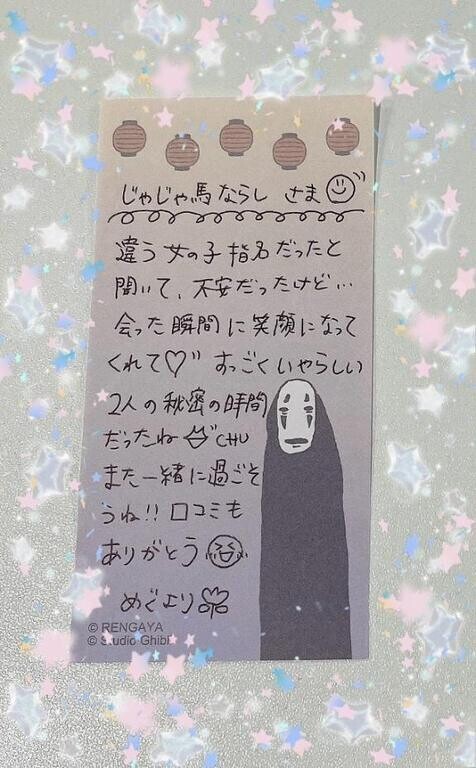 じゃじゃ馬ならし さま
違う女の子指名だったと
聞いて、不安だったけど…
会った瞬間に笑顔になって
くれて♡" すっごくいやらしい
2人の秘密の時間
だったね CHU
また一緒に過ごそ
うね!! 口コミも
ありがとう
めぐより
© RENGAYA
© Studio Ghibl